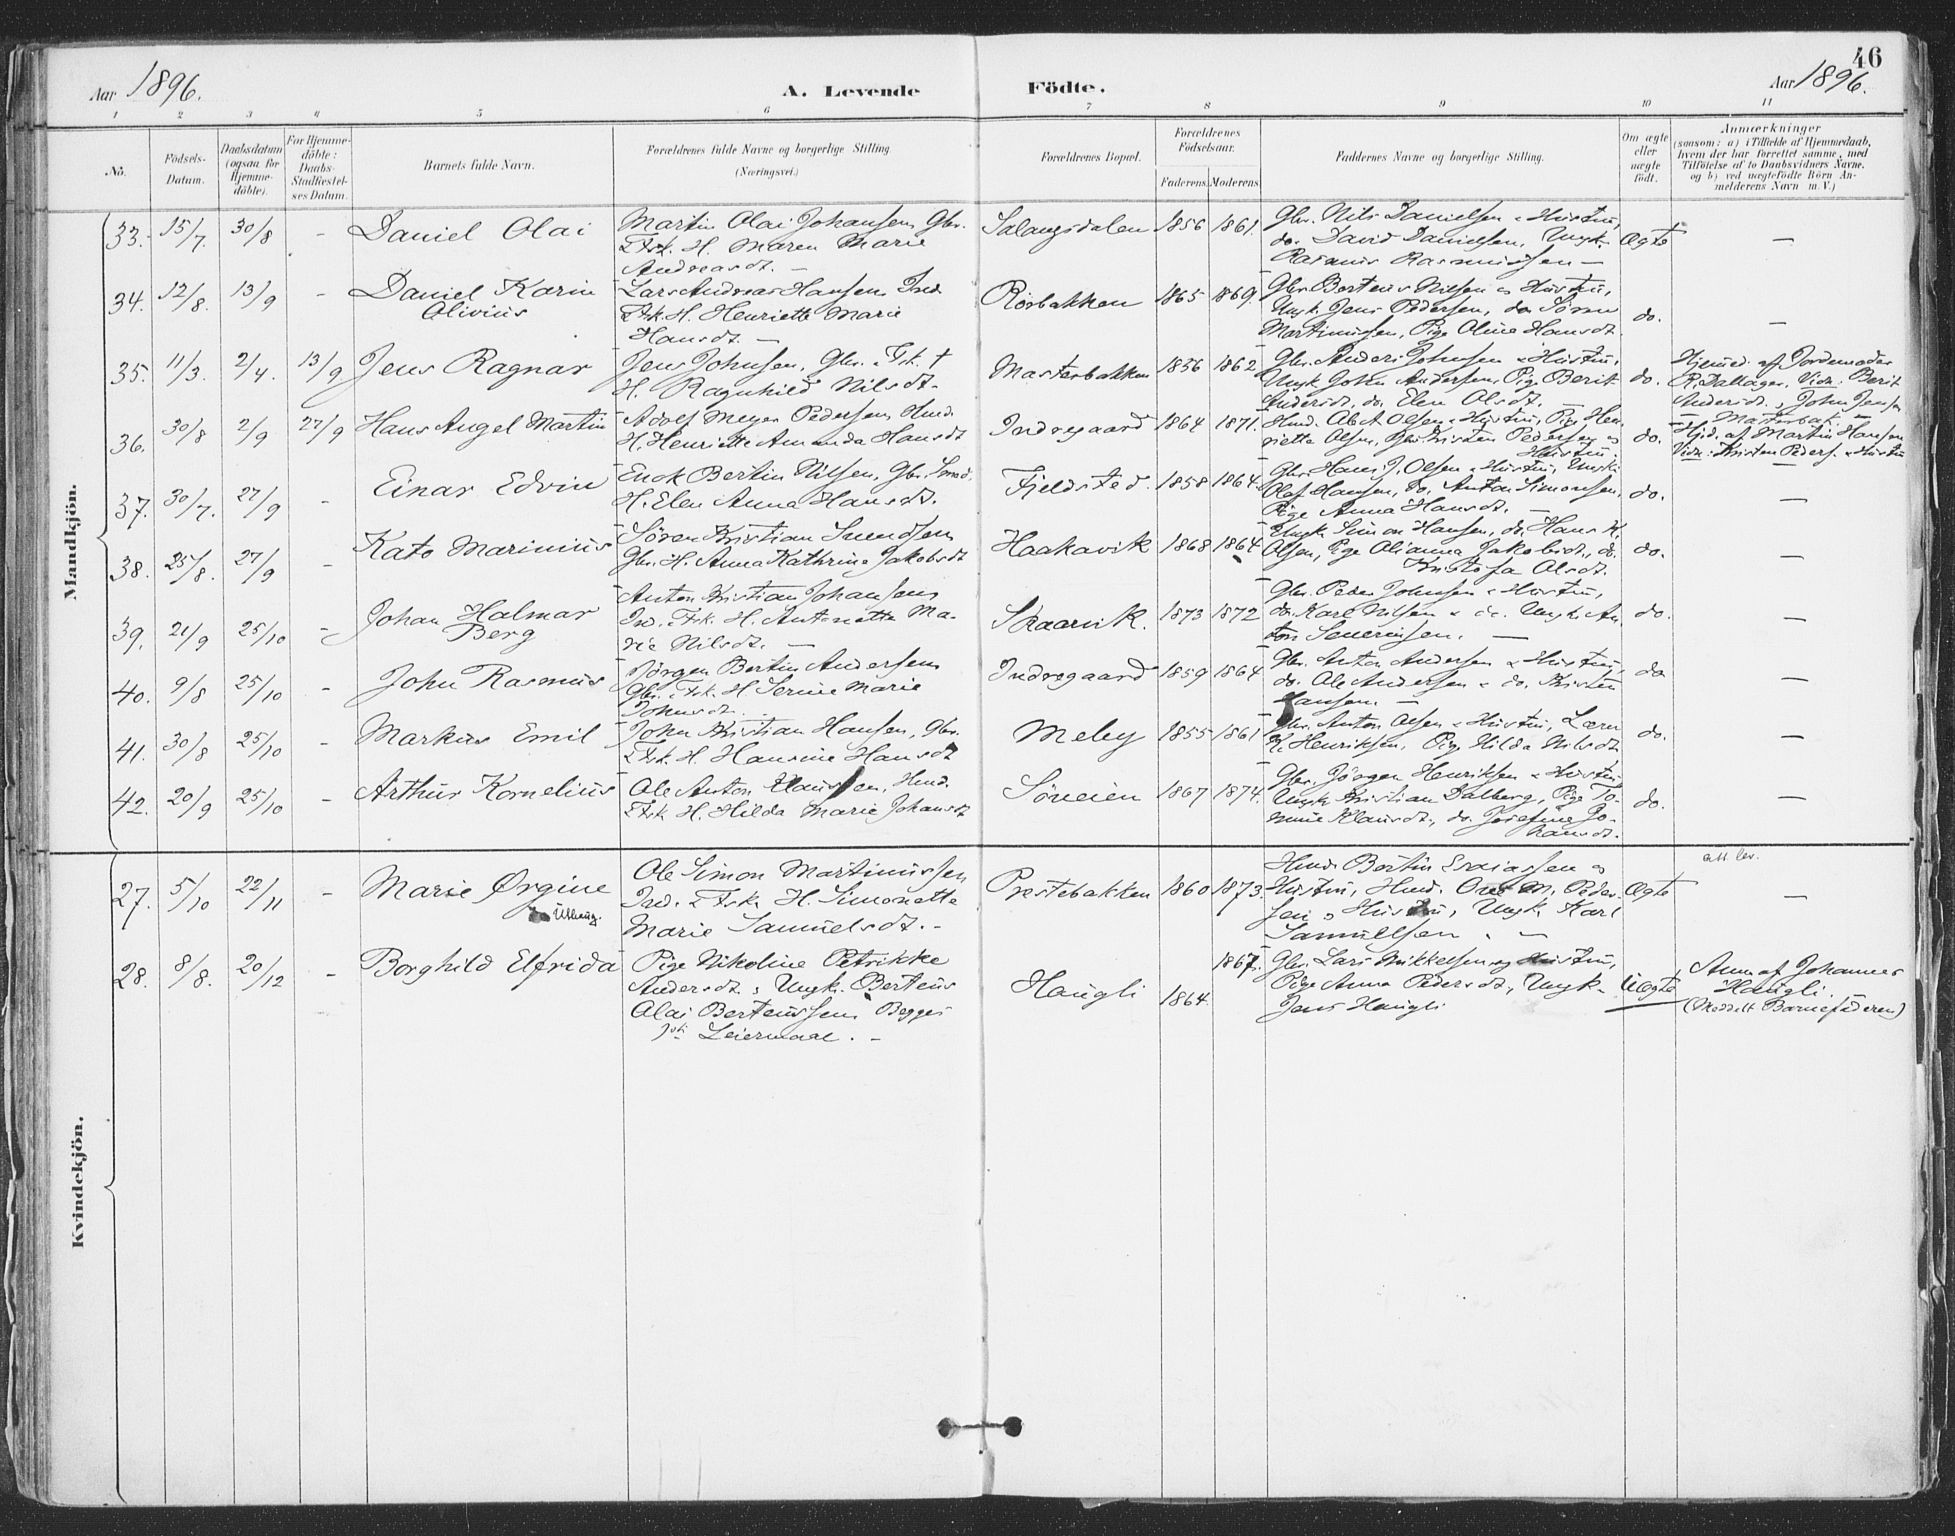 46
Aar 1896.
A. Levende Födte.
Aar 1896.
1 2 3 4 5 6 7 8 9 10 11
No.
Födsels-Datum.
Daabsdatum (ogsaa for Hjemme-döbte).
For Hjemme-döbte: Daabs-Stadfæstel-ses Datum.
Barnets fulde Navn.
Forældrenes fulde Navne og borgerlige Stilling.
(Næringsvei.)
Forældrenes Bopæl.
Forældrenes Födselsaar.
Faderens. Moderens.
Faddernes Navne og borgerlige Stilling.
Om ægte eller uægte födt.
Anmærkninger
(saasom: a) i Tilfælde af Hjemmedaab,
hvem der har forrettet samme, med
Tilföielse af to Daabsvidners Navne,
og b) ved uægtefödte Börn An-
melderens Navn m. V.)
Mandkjön.
33. 15/7. 30/8 - Daniel Olai
Martin Olai Johansen, Gbr.
Fsk. H. Maren Marie
Andreasdt. -
Salangsdalen 1856 1861.
Gbr. Nils Danielsen & Hustru,
do. David Danielsen, Ungk.
Rasmus Rasmussen -
Ægte -
34. 12/8. 13/9 - Daniel Karin
Olivius
Lars Andreas Hansen, Ind.
Fsk. H. Henriette Marie
Hansdt. -
Rörbakken 1865 1869.
Gbr. Berteus Nilsen & Hustru,
Ungk. Jens Pedersen, do. Sören
Martinussen, Pige Oline Hansdt.
do. -
35. 11/3. 2/4. 13/9 Jens Ragnar
Jens Johnsen, Gbr. & Fsk. †
H. Ragnhild Nilsdt.
Masterbakken 1856 1862
Gbr. Anders Johnsen & Hustru,
Ungk. John Andersen, Pige Berit
Andersdt., do. Elen Olsdt. -
do.
Hjemmed. af Jordemoder
R. Dallager, Vidn. Berit
Andersdt., John Jensen
Masterbak. -
36. 30/8 2/9 27/9 Hans Angel Martin
Adolf Meyer Pedersen, Hmd.
H. Henriette Amanda Hansdt
Indregaard 1864 1871.
Hmd. Ole A. Olsen & Hustru, Pige Hen-
riette Olsen, Gbr. Kristen Pedersen &
Hustru.
do.
Hjd. af Martin Hansen
Vidn: Kristen Peders. & Hustru
37. 30/7. 27/9 - Einar Edvin
Enok Bertin Nilsen, Gbr. Smed.
H. Elen Anna Hansdt.
Fjeldsted. 1858 1864.
Gbr. Hans J. Olsen & Hustru, Ungk.
Olaf Hansen, do. Anton Simonsen,
Pige Anna Hansdt. -
do. -
38. 25/8. 27/9 - Kato Marinius
Sören Kristian Svendsen
Gbr. H. Anna Kathrine Jakobsdt
Haakavik 1868 1864
Ungk. Simon Hansen, do. Hans K.
Olsen, Pige Olianna Jakobsdt., do.
Kristofa Olsdt.
do. -
39. 21/9 25/10 - Johan Halmar
Berg
Anton Kristian Johansen
Ind. Fsk. H. Antonette Ma-
rie Nilsdt. -
Skaarvik. 1873 1872
Gbr. Peder Johnsen & Hustru,
do. Karl Nilsen & do. Ungk. An-
ton Severinsen. -
do. -
40. 9/8 25/10 - John Rasmus
Jörgen Bertin Andersen
Gbr. & Fsk. H. Serine Marie
Johnsdt.
Indregaard 1859 1864
Gbr. Anton Andersen & Hustru,
do. Ole Andersen & do. Kristen
Hansen. -
do -
41. 30/8 25/10 - Markus Emil
John Kristian Hansen, Gbr.
Fsk. H. Hansine Hansdt
Meby 1855 1861
Gbr. Anton Olsen & Hustru, Lærer
K. Henriksen, Pige Hilda Nilsdt
do. -
42. 20/9 25/10 - Arthur Kornelius
Ole Anton Klaussen, Hmd.
Fsk H. Hilda Marie Johansdt
Söveien 1867 1874.
Gbr. Jörgen Henriksen & Hustru,
Ungk. Kristian Dalberg, Pige To-
mine Klausdt., do. Josefine Jo-
hansdt.
do. -
Kvindekjön.
27. 5/10 22/11 - Marie Ørgine
Ole Simon Martinussen
Ind. & Fsk. H. Simonette
Marie Samuelsdt. -
Prestebakken 1860 1873.
Hmd. Bertin Esaiassen &
Hustru, Hmd. Ove M. Peder-
sen & Hustru, Ungk. Karl
Samuelsen. -
Ægte
att. lev.
-
28. 8/8. 20/12 - Borghild Elfrida
Pige Nikoline Petrikke
Andersdt. & Ungk. Berteus
Olai Berteussen Begges
1ste Leiermaal. -
Haugli 1864 1867.
Gbr. Lars Mikkelsen og Hustru,
Pige Anna Pedersdt, Ungk.
Jens Haugli
Uægte
Anm. af Johannes
Haugli.
(Meddelt Barnefaderen)